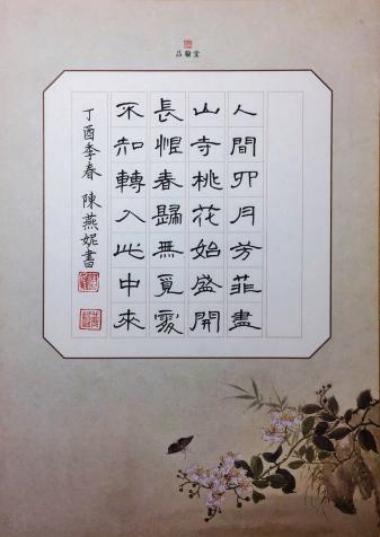 品翰堂
人間四月芳菲盡
山寺桃花始盛開
長恨春歸無覓處
不知轉入此中來
丁酉季春 陳燕妮書